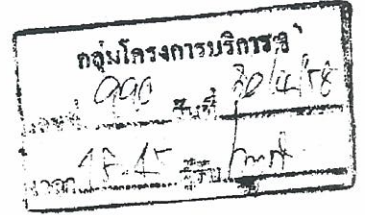 กลุ่มโครงการบริการ
เลขที่ 990 วันที่ 20/4/58
เวลา 17.45 ผู้รับ